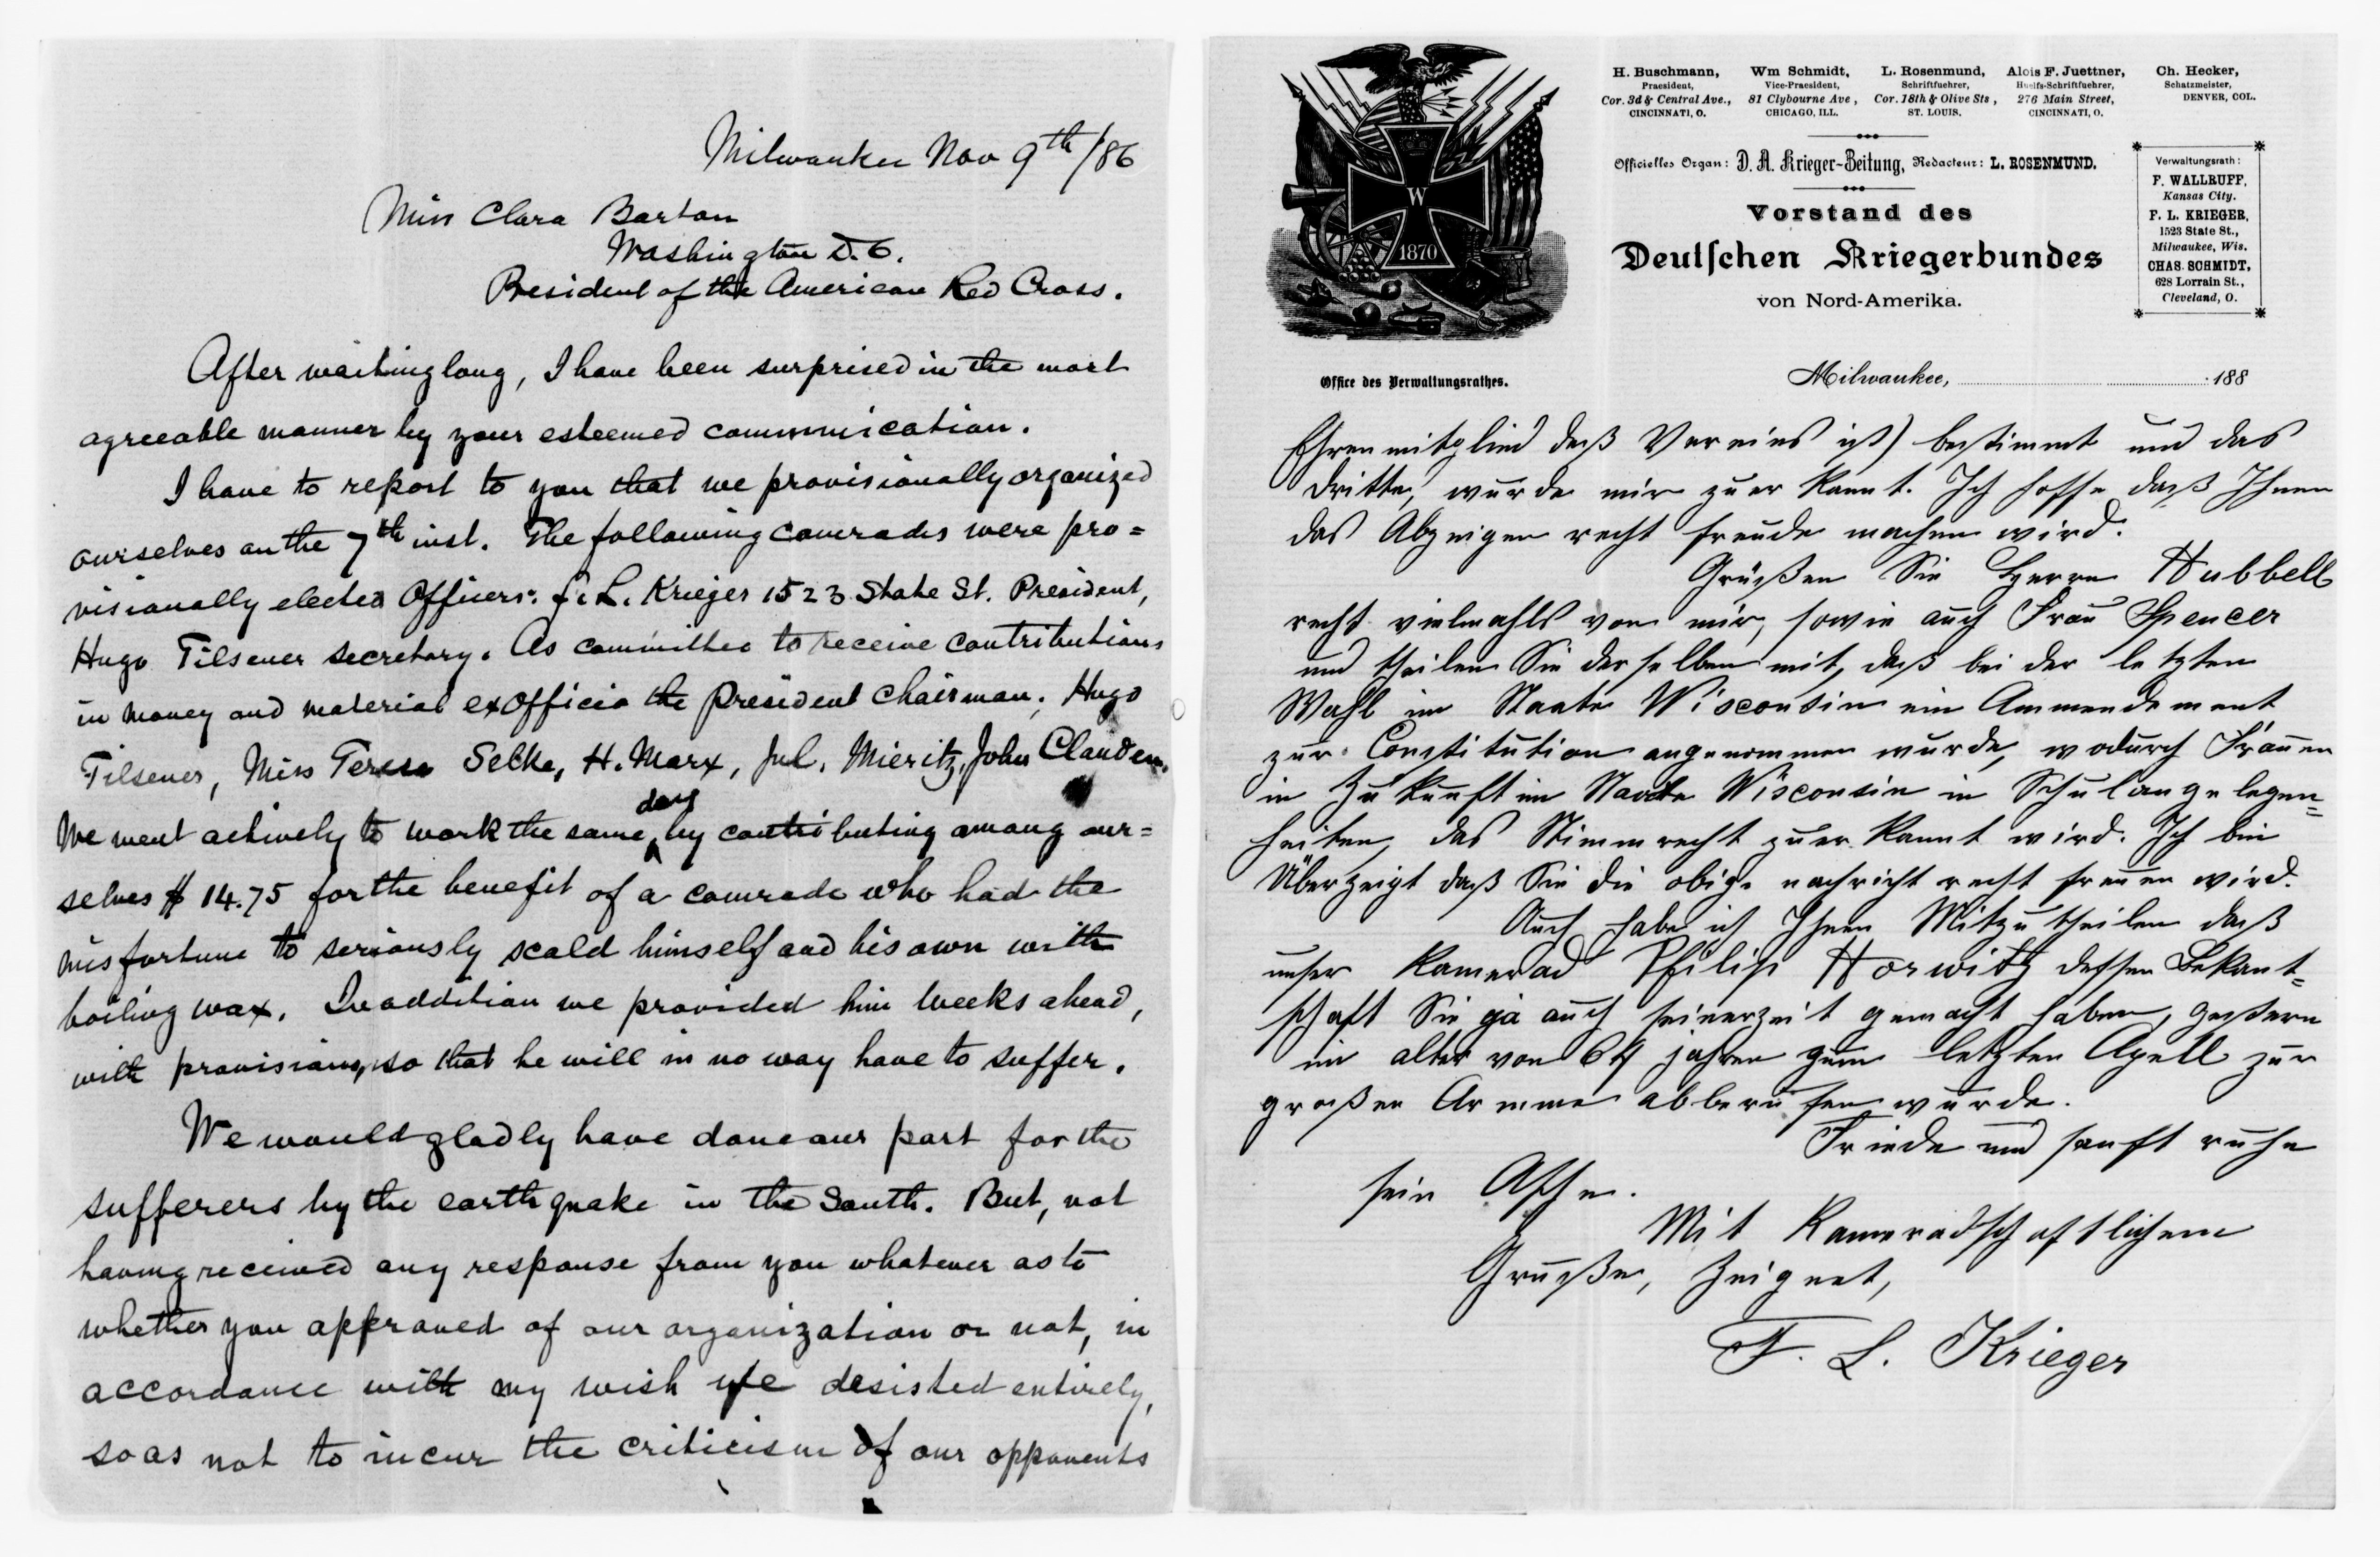 Milwaukee Nov 9th/86
Miss Clara Barton
Washington D.C.
President of the American Red Cross.
After waiting long, I have been surprised in the most
agreeable manner by your esteemed communication.
I have to report to you that we provisionally organized
ourselves on the 7th inst. The following comrades were pro=
visionally elected Officers: F. L. Krieger 1523 State St. President,
Hugo Tilsener secretary. As committee to receive contributions
in money and material exOfficio the President Chairman; Hugo
Tilsener, Miss Terese Selke, H. Marx, Jul. Mieritz, John Clauden.
We went actively to work the same day by contributing among our=
selves $ 14.75 for the benefit of a comrade who had the
misfortune to seriously scald himself and his own with
boiling wax. In addition we provided him weeks ahead,
with provisions, so that he will in no way have to suffer.
We would gladly have done our part for the
sufferers by the earthquake in the South. But, not
having received any response from you whatever as to
whether you approved of our organization or not, in
accordance with my wish we desisted entirely,
so as not to incur the criticism of our opponents
H. Buschmann,
Praesident,
Cor. 3d & Central Ave.,
CINCINNATI, O.
Wm Schmidt,
Vice-Praesident,
81 Clybourne Ave,
CHICAGO, ILL.
L. Rosenmund,
Schriftfuehrer,
Cor. 18th & Olive Sts,
ST. LOUIS.
Alois F. Juettner,
Huelfs-Schriftfuehrer,
276 Main Street,
CINCINNATI, O.
Ch. Hecker,
Schatzmeister,
DENVER, COL.
Officielles Organ: D. A. Krieger-Zeitung, Redacteur: L. ROSENMUND.
Vorstand des
Deutschen Kriegerbundes
von Nord-Amerika.
Verwaltungsrath:
F. WALLRUFF,
Kansas City.
F. L. KRIEGER,
1523 State St.,
Milwaukee, Wis.
CHAS. SCHMIDT,
628 Lorrain St.,
Cleveland, O.
W
1870
Office des Verwaltungsrathes.
Milwaukee, 188
Ehrenmitglied daß Vereins ist) bestimmt und das
dritte, wurde mir zuerkannt. Ich hoffe daß Ihnen
das Abzeigen recht freude machen wird.
Grüßen Sie Herrn Hubbell
recht vielmahls von mir, sowie auch Frau Spencer
und theilen Sie derselben mit, daß bei der letzten
Wahl im Staate Wisconsin ein Ammendement
zur Constitution angenommen wurde, wodurch Frauen
in Zukunft im Staate Wisconsin in Schulangelegen=
heiten, das Stimmrecht zuerkannt wird. Ich bin
Überzeigt daß Sie die obige nachricht recht freuen wird.
Auch habe ich Ihnen Mitzutheilen daß
unser Kamerad Philip Horwitz dessen Bekant=
schaft Sie ja auch seinerzeit gemacht haben, gestern
im alter von 64 jahren zum letzten Apell zur
großen Armme abberufen wurde.
Friede und sanft ruhe
sein Asche.
Mit Kameradschaftlichem
Gruße, Zeignet,
F. L. Krieger